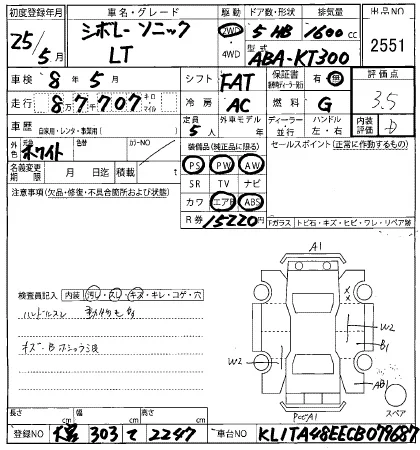 初度登録年月 車名・グレード 駆動 ドア数・形状 排気量 出品NO
25/5月 シボレー ソニック LT 2WD・4WD 5 HB 1600cc 2551
型式 ABA-KT300
車検 8年 5月 シフト FAT 保証書 有・無 評価点
走行 8万7千707 キロ・マイル 冷房 AC 燃料 G 3.5
車歴 自家用・レンタ・事業用( ) 定員 5人 外車年モデル 年 ディーラー・並行 ハンドル 左・右 内装評価 D
外色 元色 ホワイト 色替 カラーNO 装備品(純正品に限る) セールスポイント(正常に作動するもの)
名義変更期限 月 日迄 積載 t PS PW AW
注意事項(欠品・修復・不具合箇所および状態) SR TV ナビ
カワ エアB ABS
R券 15220円
Fガラス トビ石・キズ・ヒビ・ワレ・リペア跡
検査員記入 内装 汚レ・スレ・キズ・キレ・コゲ・穴
ハンドルスレ
A1
W2
B1
W2
AB1
A1
スペア
長さ cm 幅 cm 高さ cm
登録NO 303 て 2247 車台NO KL1TA48EECB079687